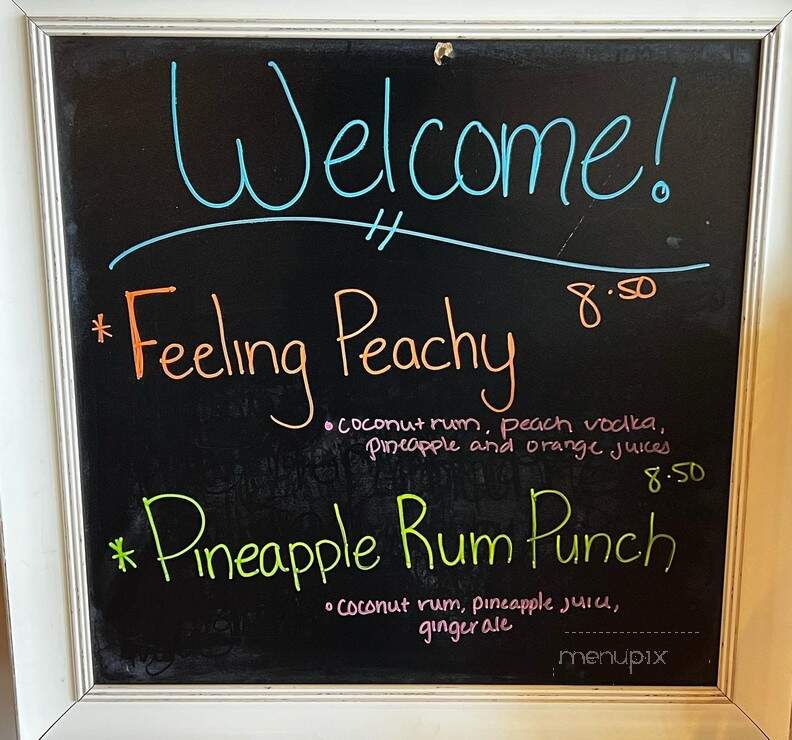 Welcome!
8.50
* Feeling Peachy
• coconut rum, peach vodka,
pineapple and orange juices
8.50
* Pineapple Rum Punch
• coconut rum, pineapple juice,
ginger ale
menupix